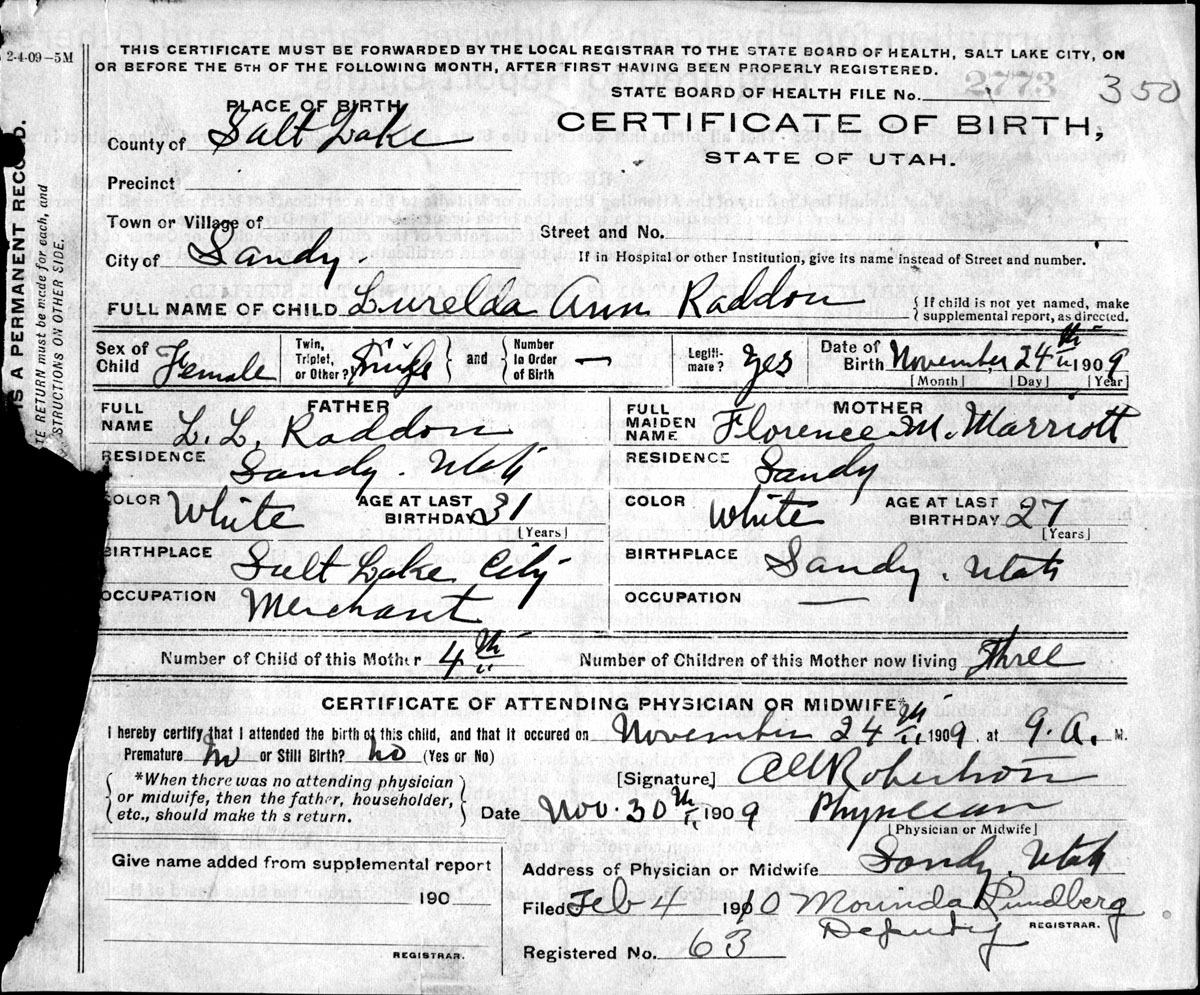 2-4-09-5M
THIS CERTIFICATE MUST BE FORWARDED BY THE LOCAL REGISTRAR TO THE STATE BOARD OF HEALTH, SALT LAKE CITY, ON
OR BEFORE THE 5TH OF THE FOLLOWING MONTH, AFTER FIRST HAVING BEEN PROPERLY REGISTERED.
350
STATE BOARD OF HEALTH FILE No.
PLACE OF BIRTH
CERTIFICATE OF BIRTH,
STATE OF UTAH.
County of Salt Lake
Precinct
Town or Village of
Street and No.
City of Sandy
If in Hospital or other Institution, give its name instead of Street and number.
FULL NAME OF CHILD Lurelda Ann Raddon
{If child is not yet named, make
supplemental report, as directed.
Sex of Child Female
Twin, Triplet, or Other? Single
and Number in Order of Birth —
Legitimate? Yes
Date of Birth November 24th 1909
[Month] [Day] [Year]
FATHER
FULL NAME L. L. Raddon
RESIDENCE Sandy. Utah
COLOR White AGE AT LAST BIRTHDAY 31
[Years]
BIRTHPLACE Salt Lake City
OCCUPATION Merchant
MOTHER
FULL MAIDEN NAME Florence M. Marriott
RESIDENCE Sandy
COLOR White AGE AT LAST BIRTHDAY 27
[Years]
BIRTHPLACE Sandy. Utah
OCCUPATION —
Number of Child of this Mother 4th
Number of Children of this Mother now living Three
CERTIFICATE OF ATTENDING PHYSICIAN OR MIDWIFE*
I hereby certify that I attended the birth of this child, and that it occured on November 24th 1909. at 9. A. M.
Premature No or Still Birth? No (Yes or No)
*When there was no attending physician
or midwife, then the father, householder,
etc., should make th s return.
[Signature] Robertson
Date Nov. 30th 1909 Physician
[Physician or Midwife]
Give name added from supplemental report
190
REGISTRAR.
Address of Physician or Midwife Sandy. Utah
Filed Feb 4 1910 Morinda Lundberg
Deputy REGISTRAR.
Registered No. 63
IS A PERMANENT RECORD.
TE RETURN must be made for each, and
STRUCTIONS ON OTHER SIDE.
2773